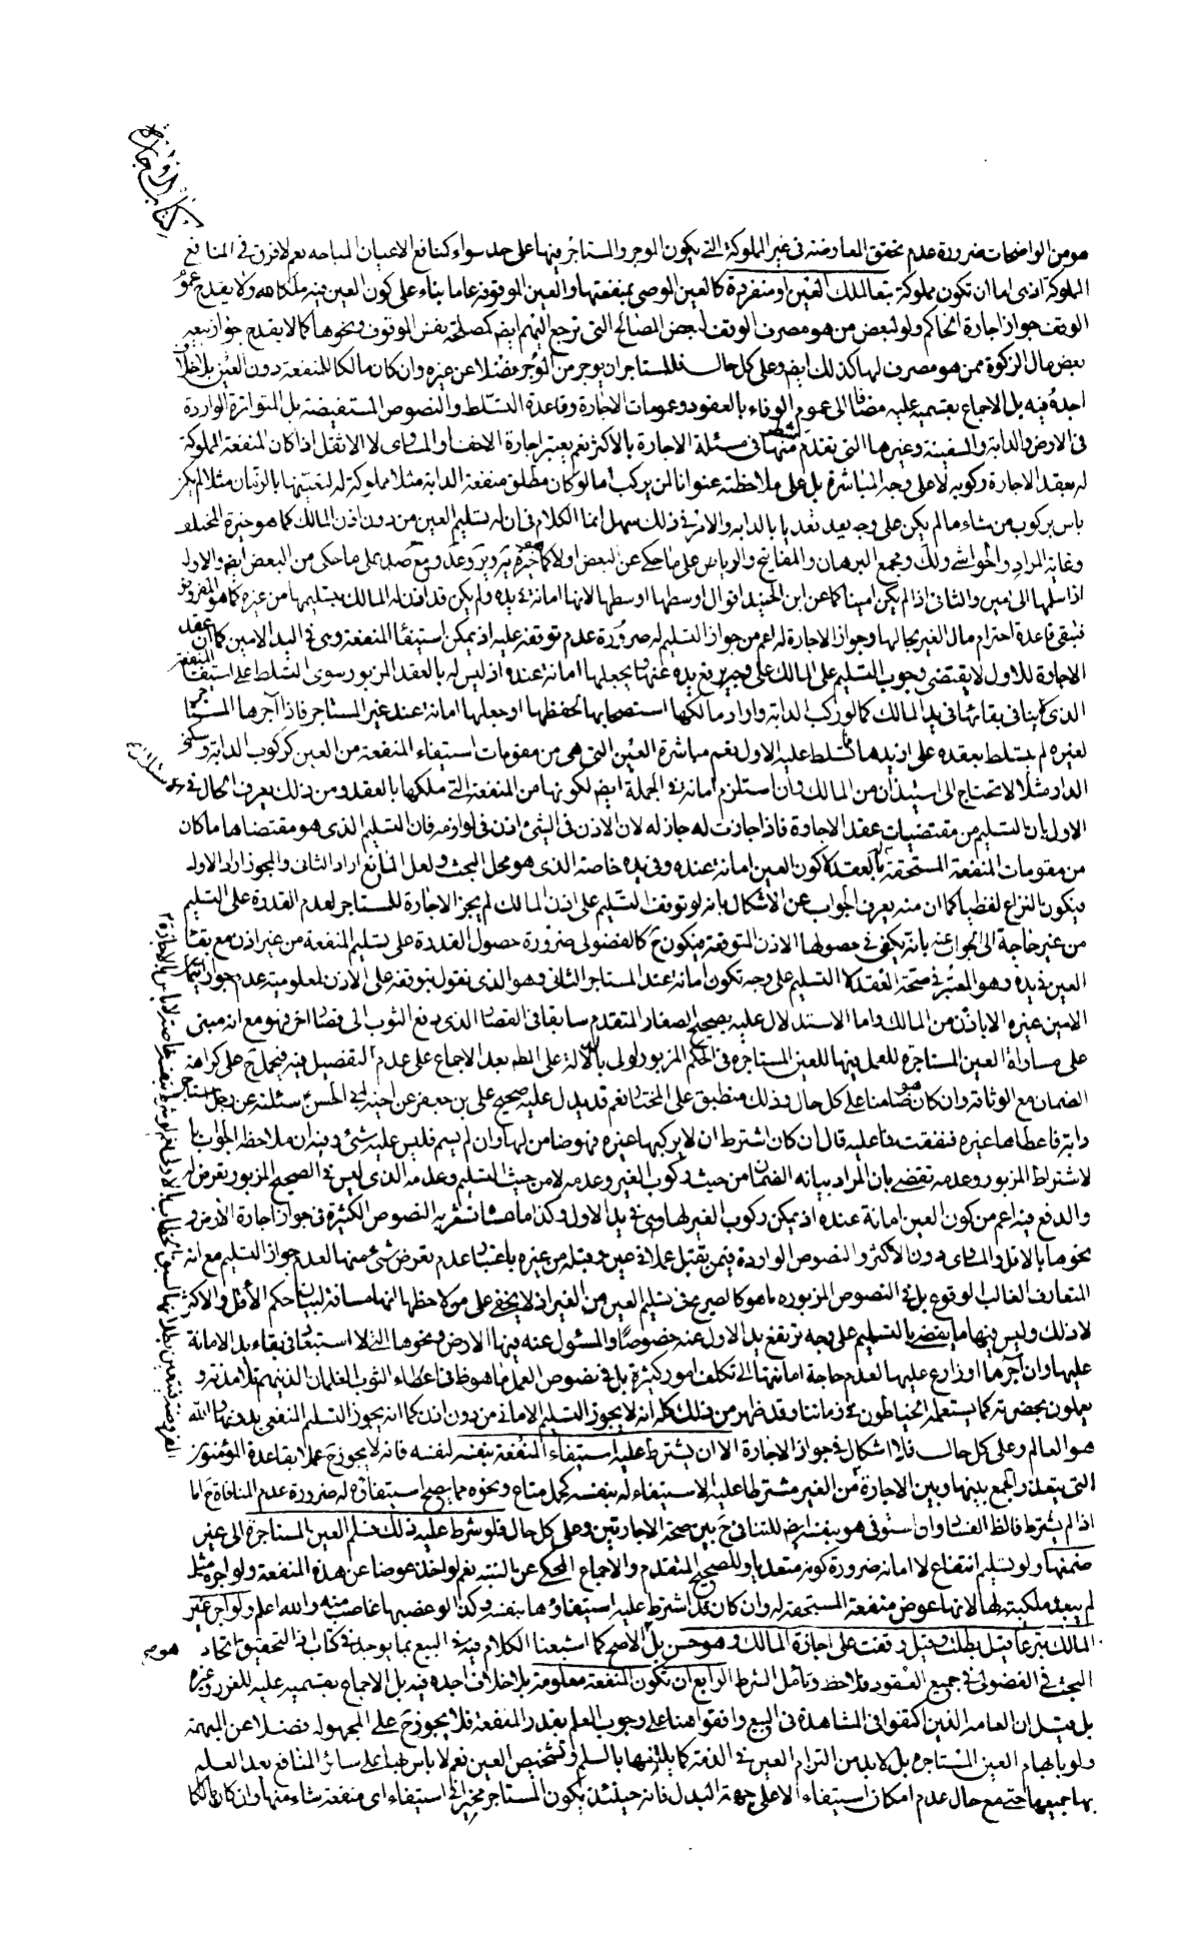 كتاب الاجارة
هو من الواضحات ضرورة عدم تحقق المعاوضة فى غير المملوكة التى يكون الموجر والمستاجر فيها على حد سواء كمنافع الاعيان المباحه نعم لا فرق فى المنافع
المملوكة اما ان تكون مملوكة تبعا لملك العين او منفردة كالعين الموصى بمنفعتها والعين الموقوفة عاما بناء على كون العين فيه ملكا لله ولا يقدح عموم
الوقف جواز اجارة الحاكم ولو لبعض من هو مصرف الوقف لبعض المصالح التى ترجع اليهم ايضا كمصلحة نفس الموقوف ونحوها كما لا يقدح جواز بيعه
بعض مال الزكوة ممن هو مصرف لها كذلك ايضا وعلى كل حال فللمستاجر ان يوجر من الموجر فضلا عن غيره وان كان مالكا للمنفعة دون العين بلا خلاف
اجده فيه بل الاجماع بقسميه عليه مضافا الى عموم الوفاء بالعقود وعمومات الاجارة وقاعدة التسلط والنصوص المستفيضة بل المتواترة الواردة
فى الارض والدابة والسفينة وغيرها التى تقدم شطر منها فى مسئلة الاجارة بالاكثر نعم يعتبر اجارة الاخف او المساوى لا الاثقل اذا كان المنفعة المملوكة
له بعقد الاجارة ركوبه لا على وجه المباشرة بل على ملاحظته عنوانا لمن يركب اما لو كان مطلق منفعة الدابة مثلا مملوكة له لتعيينها بالزمان مثلا لم يكن
باس بركوب من شاء ما لم يكن على وجه يعد تعديا بالدابه والامر فى ذلك سهل انما الكلام فى ان له تسليم العين من دون اذن المالك كما هو خيرة المختلف
وغاية المراد والحواشى ولك ومجمع البرهان والمفاتيح والرياض على ما حكى عن البعض اولا كما هو خيرة
اذا سلمها الى امين والثانى اذا لم يكن امينا كما عن ابن الجنيد اقوال اوسطها اوسطها لانها امانة فى يده ولم يكن قد اذن له المالك بتسليمها من غيره كما هو المفروض
فتبقى قاعدة احترام مال الغير بحالها وجواز الاجارة له اعم من جواز التسليم له ضرورة عدم توقفه عليه اذ يمكن استيفاء المنفعة وهى فى اليد الامين كما ان عقد
الاجارة للاول لا يقتضى وجوب التسليم على المالك على وجه يرفع يده عنها ويجعلها امانة عنده اذ ليس له بالعقد المزبور سوى التسلط على استيفاء المنفعة
الذى لا ينافى بقائها فى يد المالك كما لو ركب الدابة واراد مالكها استصحابها لحفظها او جعلها امانة عند غير المستاجر فاذا آجرها المستاجر
لغيره لم يتسلط بعقده على ازيد مما تسلط عليه الاول نعم مباشرة العين التى هى من مقومات استيفاء المنفعة من العين كركوب الدابة وسكنى
الدار مثلا لا يحتاج الى استيذان من المالك وان استلزم امانة فى الجملة ايضا لكونها من المنفعة التى ملكها بالعقد ومن ذلك يعرف الحال فى استدلال
الاول بان التسليم من مقتضيات عقد الاجارة فاذا جازت له جاز له لان الاذن فى الشىء اذن فى لوازمه فان التسليم الذى هو مقتضاها ما كان
من مقومات المنفعة المستحقة بالعقد لا كون العين امانة عنده وفى يده خاصة الذى هو محل البحث ولعل المانع اراد الثانى والمجوز اراد الاول
فيكون النزاع لفظيا كما ان منه يعرف الجواب عن الاشكال بانه لو توقف التسليم على اذن المالك لم يجز الاجارة للمستاجر لعدم القدرة على التسليم
من غير حاجة الى الجواب عنه بانه يكفى فى حصولها الاذن المتوقعة فيكون ح كالفضولى ضرورة حصول القدرة على تسليم المنفعة من غير اذن مع بقاء
العين فى يده وهو المعتبر فى صحة العقد لا التسليم على وجه تكون امانة عند المستاجر الثانى وهو الذى نقول بتوقفه على الاذن لمعلومية عدم جواز ايتمان
الامين غيره الا باذن من المالك واما الاستدلال عليه بصحيح الصفار المتقدم سابقا فى القصار الذى دفع الثوب الى قصار اخر فهو مع انه مبنى
على مساواة العين المستاجرة للعمل فيها للعين المستاجرة فى الحكم المزبور
الضمان مع الوثاقة وان كان هو ضامنا على كل حال وذلك منطبق على المختار نعم قد يدل عليه صحيح على بن جعفر عن اخيه ابى الحسن ع سئلته عن رجل استاجر
دابة فاعطاها غيره فنفقت فما عليه قال ان كان اشترط ان لا يركبها غيره فهو ضامن لها وان لم يسم فليس عليه شىء وفيه ان ملاحظة الجواب بالاشتراط
المزبور وعدمه تقضى بان المراد بيانه الضمان من حيث ركوب الغير وعدمه لا من حيث التسليم وعدمه الذى ليس فى الصحيح المزبور تعرض له
والدفع فيه اعم من كون العين امانة عنده اذ يمكن ركوب الغير لها وهى فى يد الاول وكذا ما عساه يشعر به النصوص الكثيرة فى جواز اجارة الارض
ونحوها بالاقل والمساوى دون الاكثر والنصوص الواردة فيمن يتقبل عملا فى عين ويقبله من غيره باعتبار عدم تعرض شىء منها لعدم جواز التسليم مع انه
المتعارف الغالب الوقوع بل فى النصوص المزبوره ما هو كالصريح فى تسليم العين من الغير اذ لا يخفى على من لاحظها انها مساقة لبيان حكم الأقل والاكثر
لا ذلك وليس فيها ما يقضى بالتسليم على وجه ترتفع يد الاول عنه خصوصا والمسئول عنه فيها الارض ونحوها التى لا استبعاد فى بقاء يد الامانة
عليها وان آجرها او زارع عليها لعدم حاجة امانتها الى تكلف امور كثيرة بل فى نصوص العمل ما هو ظ فى اعطاء الثوب لغلمان الذين هم تلامذته و
يعملون بحضرته كما يستعمله الخياطون فى زماننا وقد ظهر من ذلك كله انه لا يجوز التسليم الامانى من دون اذن كما انه يجوز التسليم النفعى بدونها والله
هو العالم وعلى كل حال فلا اشكال فى جواز الاجارة الا ان يشترط عليه استيفاء المنفعة بنفسه لنفسه فانه لا يجوز ح عملا بقاعدة المؤمنون
التى يتعذر الجمع بينها وبين الاجارة من الغير مشترطا عليه الاستيفاء له بنفسه كحمل متاع ونحوه مما يصح استيفاؤه له ضرورة عدم المنافاة ح اما
اذا لم يشترط فالظ الفساد وان استوفى هو بنفسه ايضا للتنافى ح بين صحة الاجارتين وعلى كل حال فلو شرط عليه ذلك فسلم العين المستاجرة الى غيره
ضمنها ولو تسليم انتفاع لا امانة ضرورة كونه متعديا وللصحيح المتقدم والاجماع المحكى عن التنقيح نعم لو اخذ عوضا عن هذه المنفعة ولو اجره مثل
لم يبعد ملكيته لها لانها عوض منفعة المستحقة له وان كان قد اشترط عليه استيفاؤها بنفسه وكذا لو غصبها غاصب منه والله اعلم ولو آجر غير
المالك تبرعا قيل بطلت وقيل وقفت على اجازة المالك وهو حسن بل الاصح كما اشبعنا الكلام فيه فى البيع بما يوجد فى كتاب اذ التحقيق اتحاد
البحث فى الفضولى فى جميع العقود فلاحظ وتامل الشرط الرابع ان تكون المنفعة معلومة بلا خلاف اجده فيه بل الاجماع بقسميه عليه للغرر وغيره
بل قيل ان العامه الذين اكتفوا فى المشاهدة فى البيع وافقوا هنا على وجوب العلم بقدر المنفعة فلا يجوز ح على المجهوله فضلا عن المبهمة
ولو بابهام العين المستاجره بل لابد من التزام العين فى الذمة كما يلتزمها بالسلم او تشخيص العين نعم لا باس هنا على سائر المنافع بعد العلم
بها جميعها حتى مع حال عدم امكان استيفاء الا على جهة البدل فانه حينئذ يكون المستاجر مخيرا فى استيفاء اى منفعة شاء منها وان كان مالكا